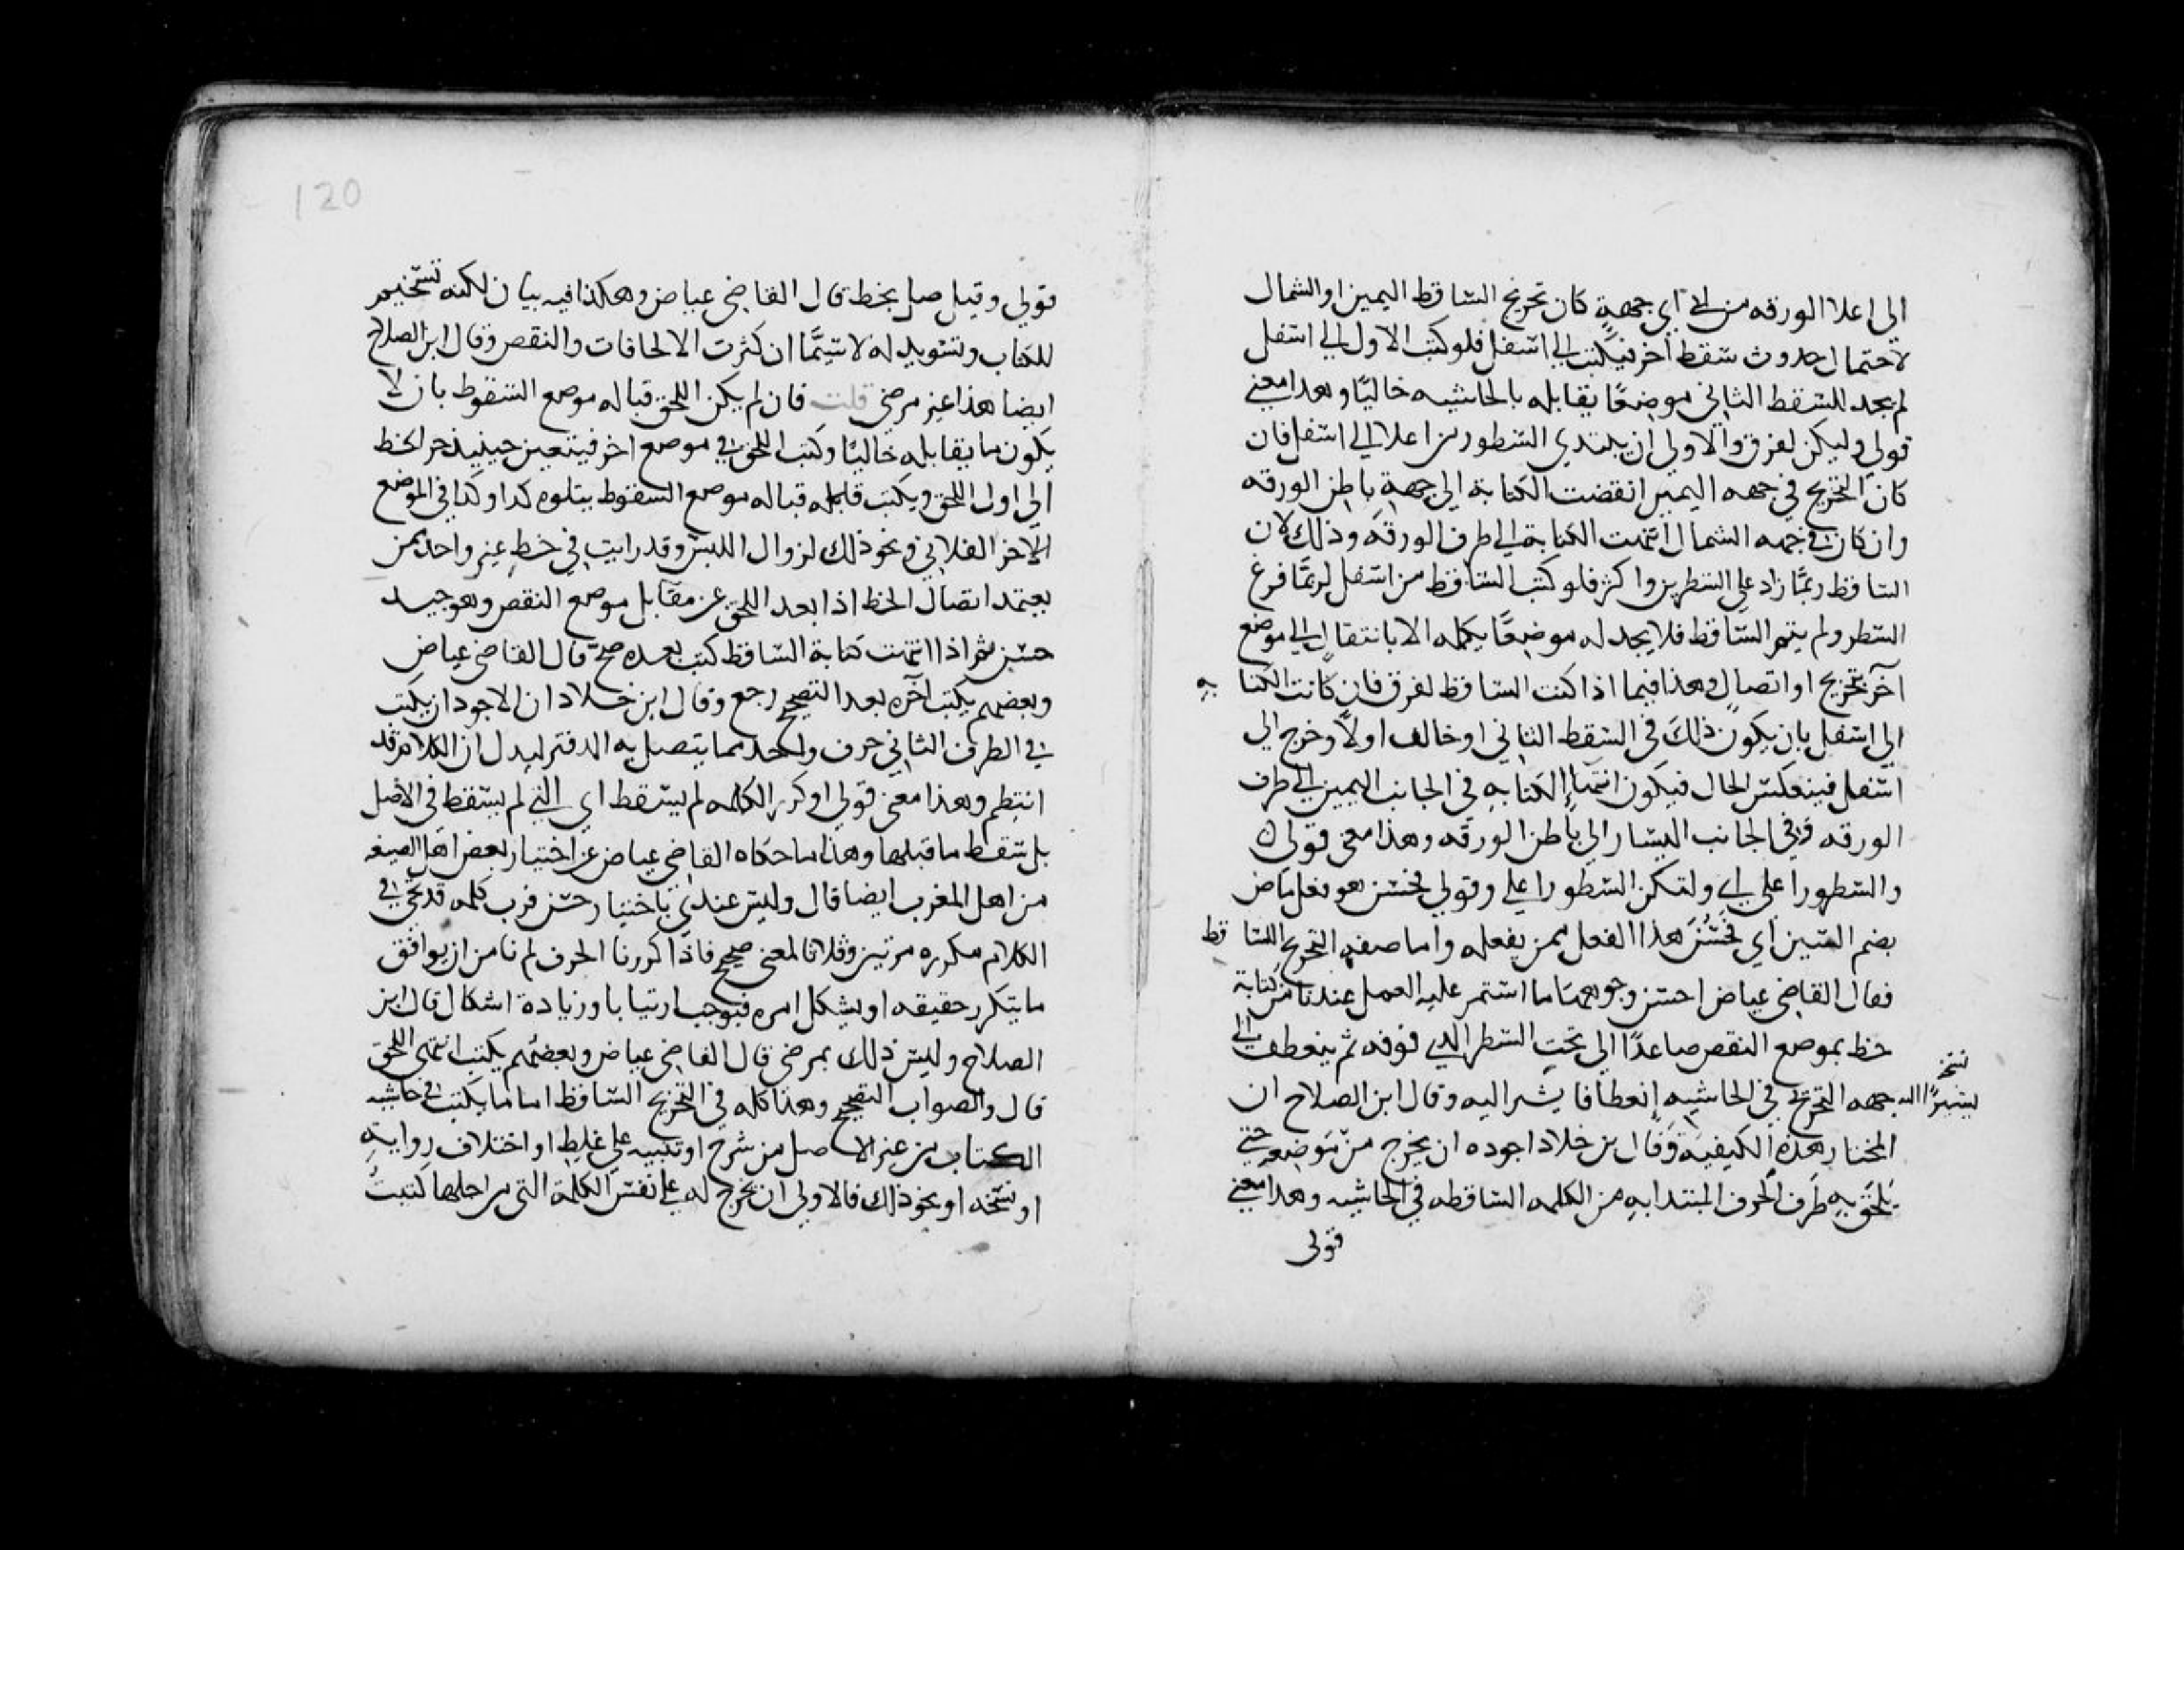 الى اعلا الورقه من اي جهةٍ كان تخريج الساقط اليمين او الشمال
لاحتمال حدوث سقط آخر فيكتب الى اسفل فلو كتب الاول الى اسفل
لم يجد للسقط الثاني موضعًا يقابله بالحاشيه خاليًا وهذا معنى
قولي وليكن لفوق والاولى ان يبتدي السطور من اعلا الى اسفل فان
كان التخريج في جهه اليمين انقضت الكتابة الى جهة باطن الورقه
وان كان في جهه الشمال انتهت الكتابة الى طرف الورقه وذلك لان
الساقط ربمّا زاد على السطرين واكثر فلو كتب الساقط من اسفل لربمّا فرغ
السطر ولم يتم الساقط فلا يجد له موضعًا يكمله الا بانتقال الى موضع
آخر بتخريج او اتصال وهذا فيما اذا كتب الساقط لفوق فان كانت الكتا به
الى اسفل بان يكون ذلك في السقط الثاني او خالف اولًا وخرج الى
اسفل فينعكس الحال فيكون انتهاء الكتابه في الجانب اليمين الى طرف
الورقه وفي الجانب اليسار الى باطن الورقه وهذا معنى قولي
والسطور اعلى اي ولتكن السطور اعلى وقولي فحسن هو فعل ماض
بضم السين اي فحَسُنَ هذا الفعل ممن يفعله واما صفه التخريج للسا قط
فقال القاضي عياض احسن وجوهها ما استمر عليه العمل عندنا من كتابة
خط بموضع النقص صاعدًا الى تحت السطر الذي فوقه ثم ينعطف الى
جهه التخريج في الحاشيه انعطافا يشير اليه وقال ابن الصلاح ان
نسخ
يشيرًا اليه
المختار هذه الكيفيه وقال بن خلاد اجوده ان يخرج من موضعه حتى
يلحق به طرف الحرف المبتدا به من الكلمه الساقطه في الحاشيه وهذا معنى
قولى
120
قولي وقيل صل بخط قال القاضي عياض وهكذا فيه بيان لكنه تسخيم
للكتاب وتسويد له لا سيَّما ان كثرت الالحاقات والنقص وقال ابن الصلاح
ايضا هذا غير مرضي قلت فان لم يكن اللحق قباله موضع السقوط بان لا
يكون ما يقابله خاليًا وكتب اللحق في موضع اخر فيتعين حينيذ جر الخط
الى اول اللحق او يكتب قباله موضع السقوط يتلوه كذا وكذا في الموضع
الآخر الفلاني ونحو ذلك لزوال اللبس وقد رايت في خط غير واحد ممن
يعتمد اتصال الخط اذا بعد اللحق عن مقابل موضع النقص وهو جيد
حسن ثم اذا انتهت كتابة الساقط كتب بعده صح قال القاضي عياض
وبعضهم يكتب آخره بعد التصحيح رجع وقال ابن خلاد ان الاجود ان يكتب
في الطرف الثاني حرف واحد مما يتصل به الدفتر ليدل ان الكلام قد
انتظم وهذا معنى قولي او كرر الكلمه لم يسقط اي التي لم يسقط في الاصل
بل سقط ما قبلها وهذا ما حكاه القاضي عياض عن اختيار بعض اهل الصنعه
من اهل المغرب ايضا قال وليس عندي باختيار حسن فرب كلمه قد تجي في
الكلام مكرره مرتين وثلاثا لمعنى صحيح فاذا كررنا الحرف لم نامن ان يوافق
ما يتكرر حقيقه او يشكل امره فيوجب ارتيابا وزيادة اشكال قال ابن
الصلاح وليس ذلك بمرضي قال القاضي عياض وبعضهم يكتب انتهى اللحق
قال والصواب التصحيح وهذا كله في التخريج الساقط اما ما يكتب في حاشيه
الكتاب من غير الاصل من شرح او تنبيه على غلط او اختلاف رواية
او نسخه او نحو ذلك فالاولى ان يخرج له على نفس الكلمة التي من اجلها كتبت